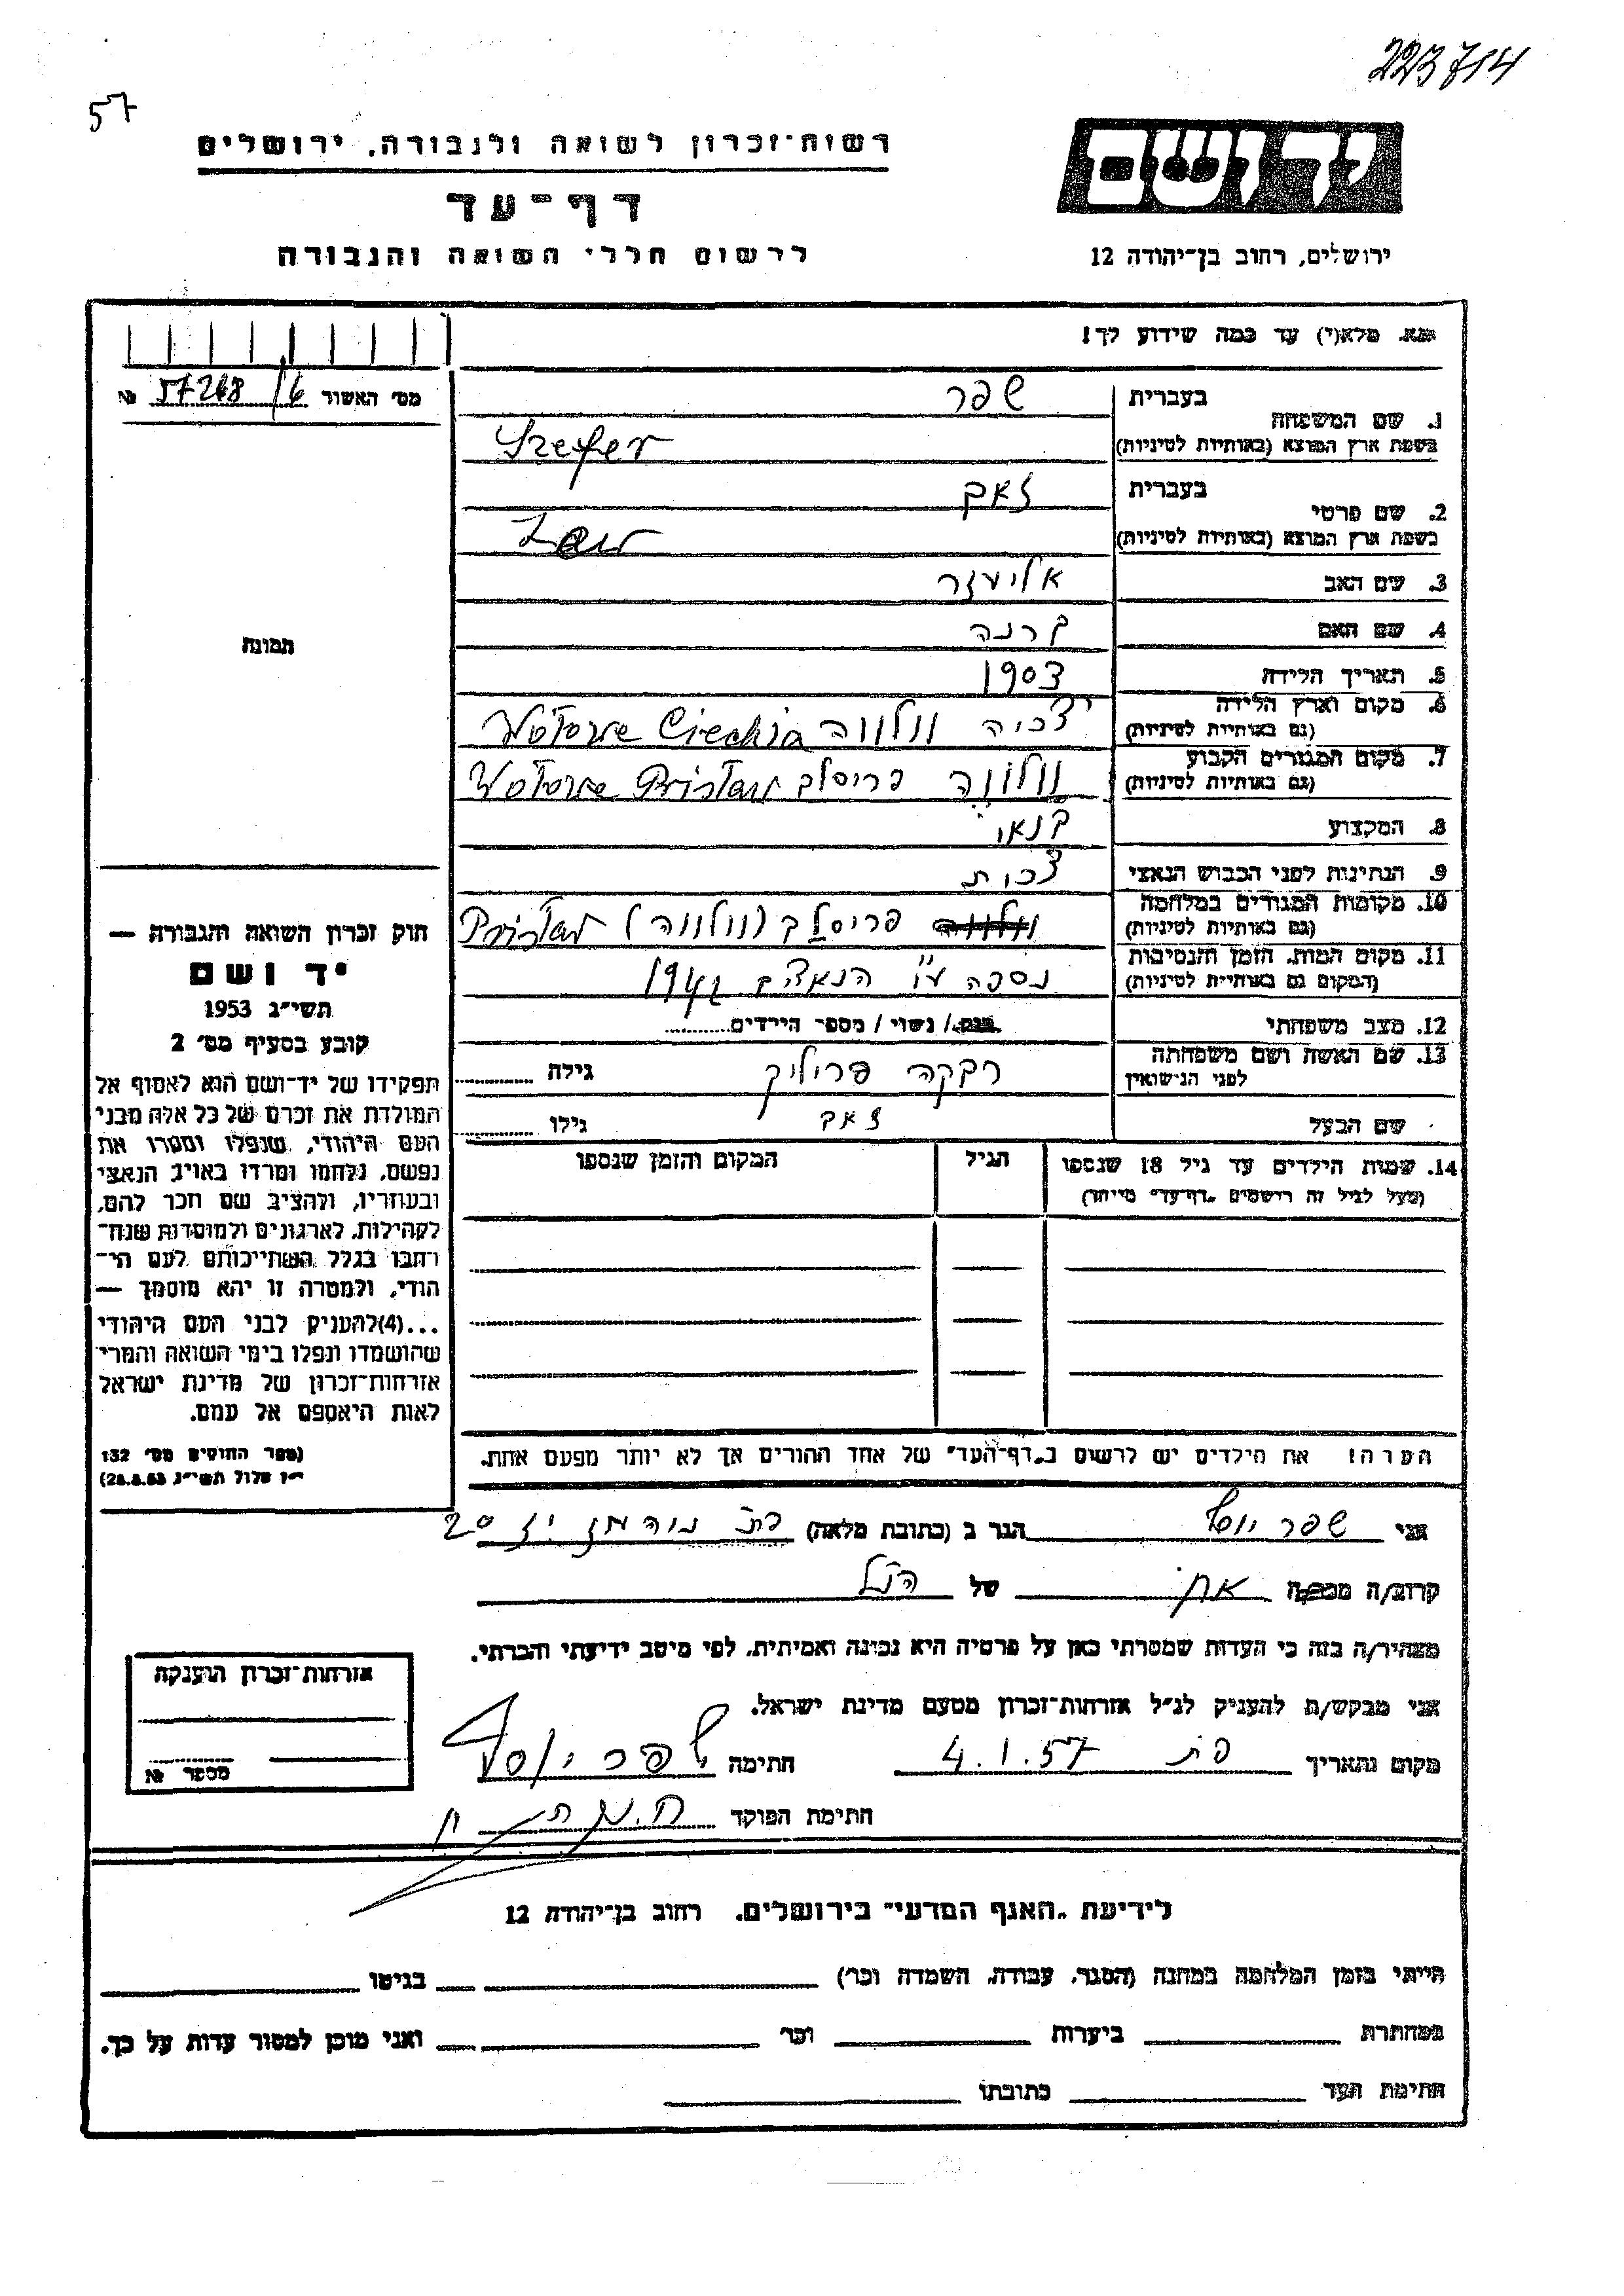 223714
57
יד ושם
רשות-זכרון לשואה ולגבורה, ירושלים
דף-עד
לרשום חללי השואה והגבורה
ירושלים, רחוב בן-יהודה 12
נא. מלא(י) עד כמה שידוע לך!
מס׳ האשור 57268/6 №
1. שם המשפחה
בעברית שפר
בשפת ארץ המוצא (באותיות לטיניות) Szefer
2. שם פרטי
בעברית זאב
בשפת ארץ המוצא (באותיות לטיניות)
3. שם האב אליעזר
4. שם האם ברנה
5. תאריך הלידה 1903
6. מקום וארץ הלידה
(גם באותיות לטיניות) צ׳כיה וולווה
7. מקום המגורים הקבוע
(גם באותיות לטיניות) וולווה פריסלב
8. המקצוע בנאי
9. הנתינות לפני הכבוש הנאצי צ׳כית
10. מקומות המגורים במלחמה
(גם באותיות לטיניות) פריסלב (וולווה)
11. מקום המות, הזמן והנסיבות
(המקום גם באותיות לטיניות) נספה ע״י הנאצים 1942
12. מצב משפחתי רווק/ נשוי/ מספר הילדים
13. שם האשה ושם משפחתה
לפני הנישואין רבקה פריליק גילה
שם הבעל זאב גילו
14. שמות הילדים עד גיל 18 שנספו
(מעל לגיל זה רושמים "דף-עד" מיוחד)
הגיל
המקום והזמן שנספו
הערה! את הילדים יש לרשום ב"דף-העד" של אחד ההורים אך לא יותר מפעם אחת.
תמונה
חוק זכרון השואה והגבורה —
יד ושם
תשי״ג 1953
קובע בסעיף מס׳ 2
תפקידו של יד-ושם הוא לאסוף אל
המולדת את זכרם של כל אלה מבני
העם היהודי, שנפלו ומסרו את
נפשם, נלחמו ומרדו באויב הנאצי
ובעוזריו, ולהציב שם וזכר להם,
לקהילות, לארגונים ולמוסדות שנח-
רבו בגלל השתייכותם לעם הי-
הודי, ולמטרה זו יהא מוסמך —
...(4)להעניק לבני העם היהודי
שהושמדו ונפלו בימי השואה והמרי
אזרחות-זכרון של מדינת ישראל
לאות היאספם אל עמם.
(ספר החוקים מס׳ 132
י״ז אלול תשי״ג 28.8.53)
אני שפר יוסף הגר ב (כתובת מלאה) 20
קרוב/ה אח של הנ״ל
מצהיר/ה בזה כי העדות שמסרתי כאן על פרטיה היא נכונה ואמיתית, לפי מיטב ידיעתי והכרתי.
אני מבקש/ת להעניק לנ״ל אזרחות-זכרון מטעם מדינת ישראל.
מקום ותאריך פת 4.1.57 חתימה שפר יוסף
חתימת הפוקד
אזרחות-זכרון הוענקה
מספר №
לידיעת "האגף המדעי" בירושלים, רחוב בן-יהודה 12
הייתי בזמן המלחמה במחנה (הסגר, עבודה, השמדה וכו׳) בגיטו
במחתרת ביערות וכו׳ ואני מוכן למסור עדות על כך.
חתימת העד כתובתו